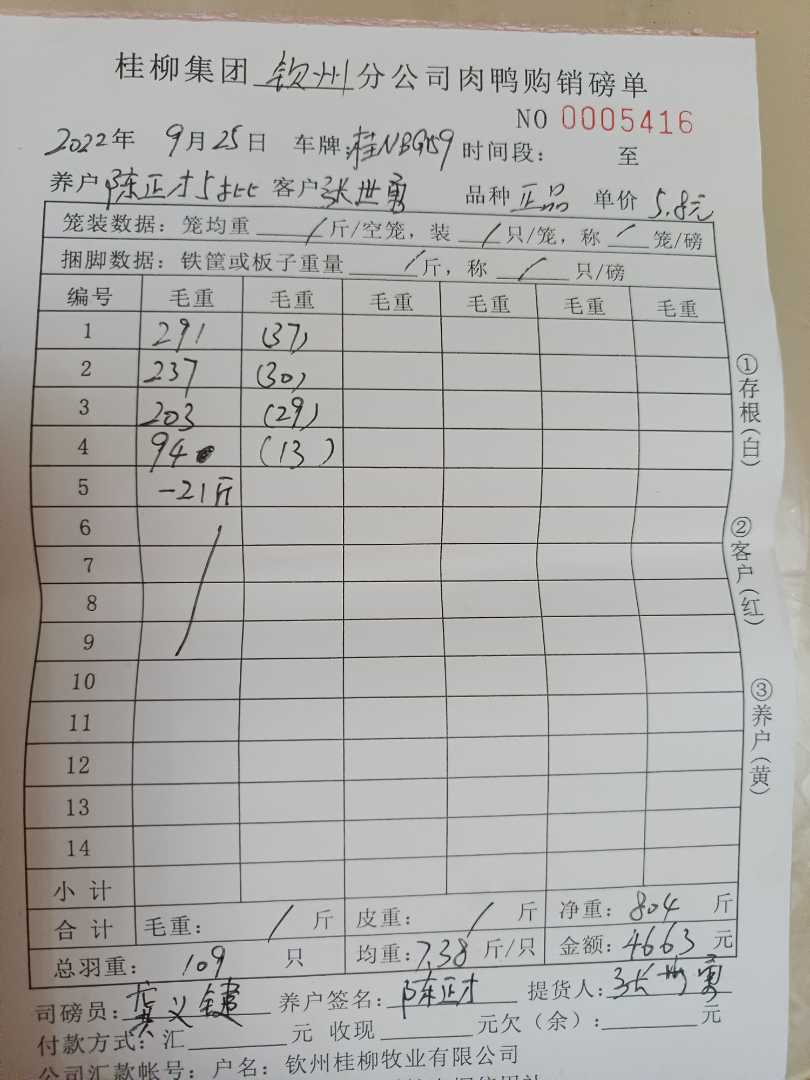 桂柳集团 钦州 分公司肉鸭购销磅单
NO 0005416
2022年 9月25日 车牌:桂NBG159 时间段: 至
养户 陈正才5批 客户 张世勇 品种 正品 单价 5.8元
笼装数据:笼均重 / 斤/空笼,装 / 只/笼,称 / 笼/磅
捆脚数据:铁筐或板子重量 / 斤,称 / 只/磅
编号 毛重 毛重 毛重 毛重 毛重 毛重
1 291 (37)
2 237 (30)
3 203 (29)
4 94 (13)
5 -21斤
6
7
8
9
10
11
12
13
14
小计
合计 毛重: / 斤 皮重: / 斤 净重: 804 斤
总羽重: 109 只 均重: 7.38 斤/只 金额: 4663 元
司磅员: 义键 养户签名: 陈正才 提货人: 张世勇
付款方式:汇 元 收现 元欠(余): 元
公司汇款帐号:户名:钦州桂柳牧业有限公司
①存根(白)
②客户(红)
③养户(黄)